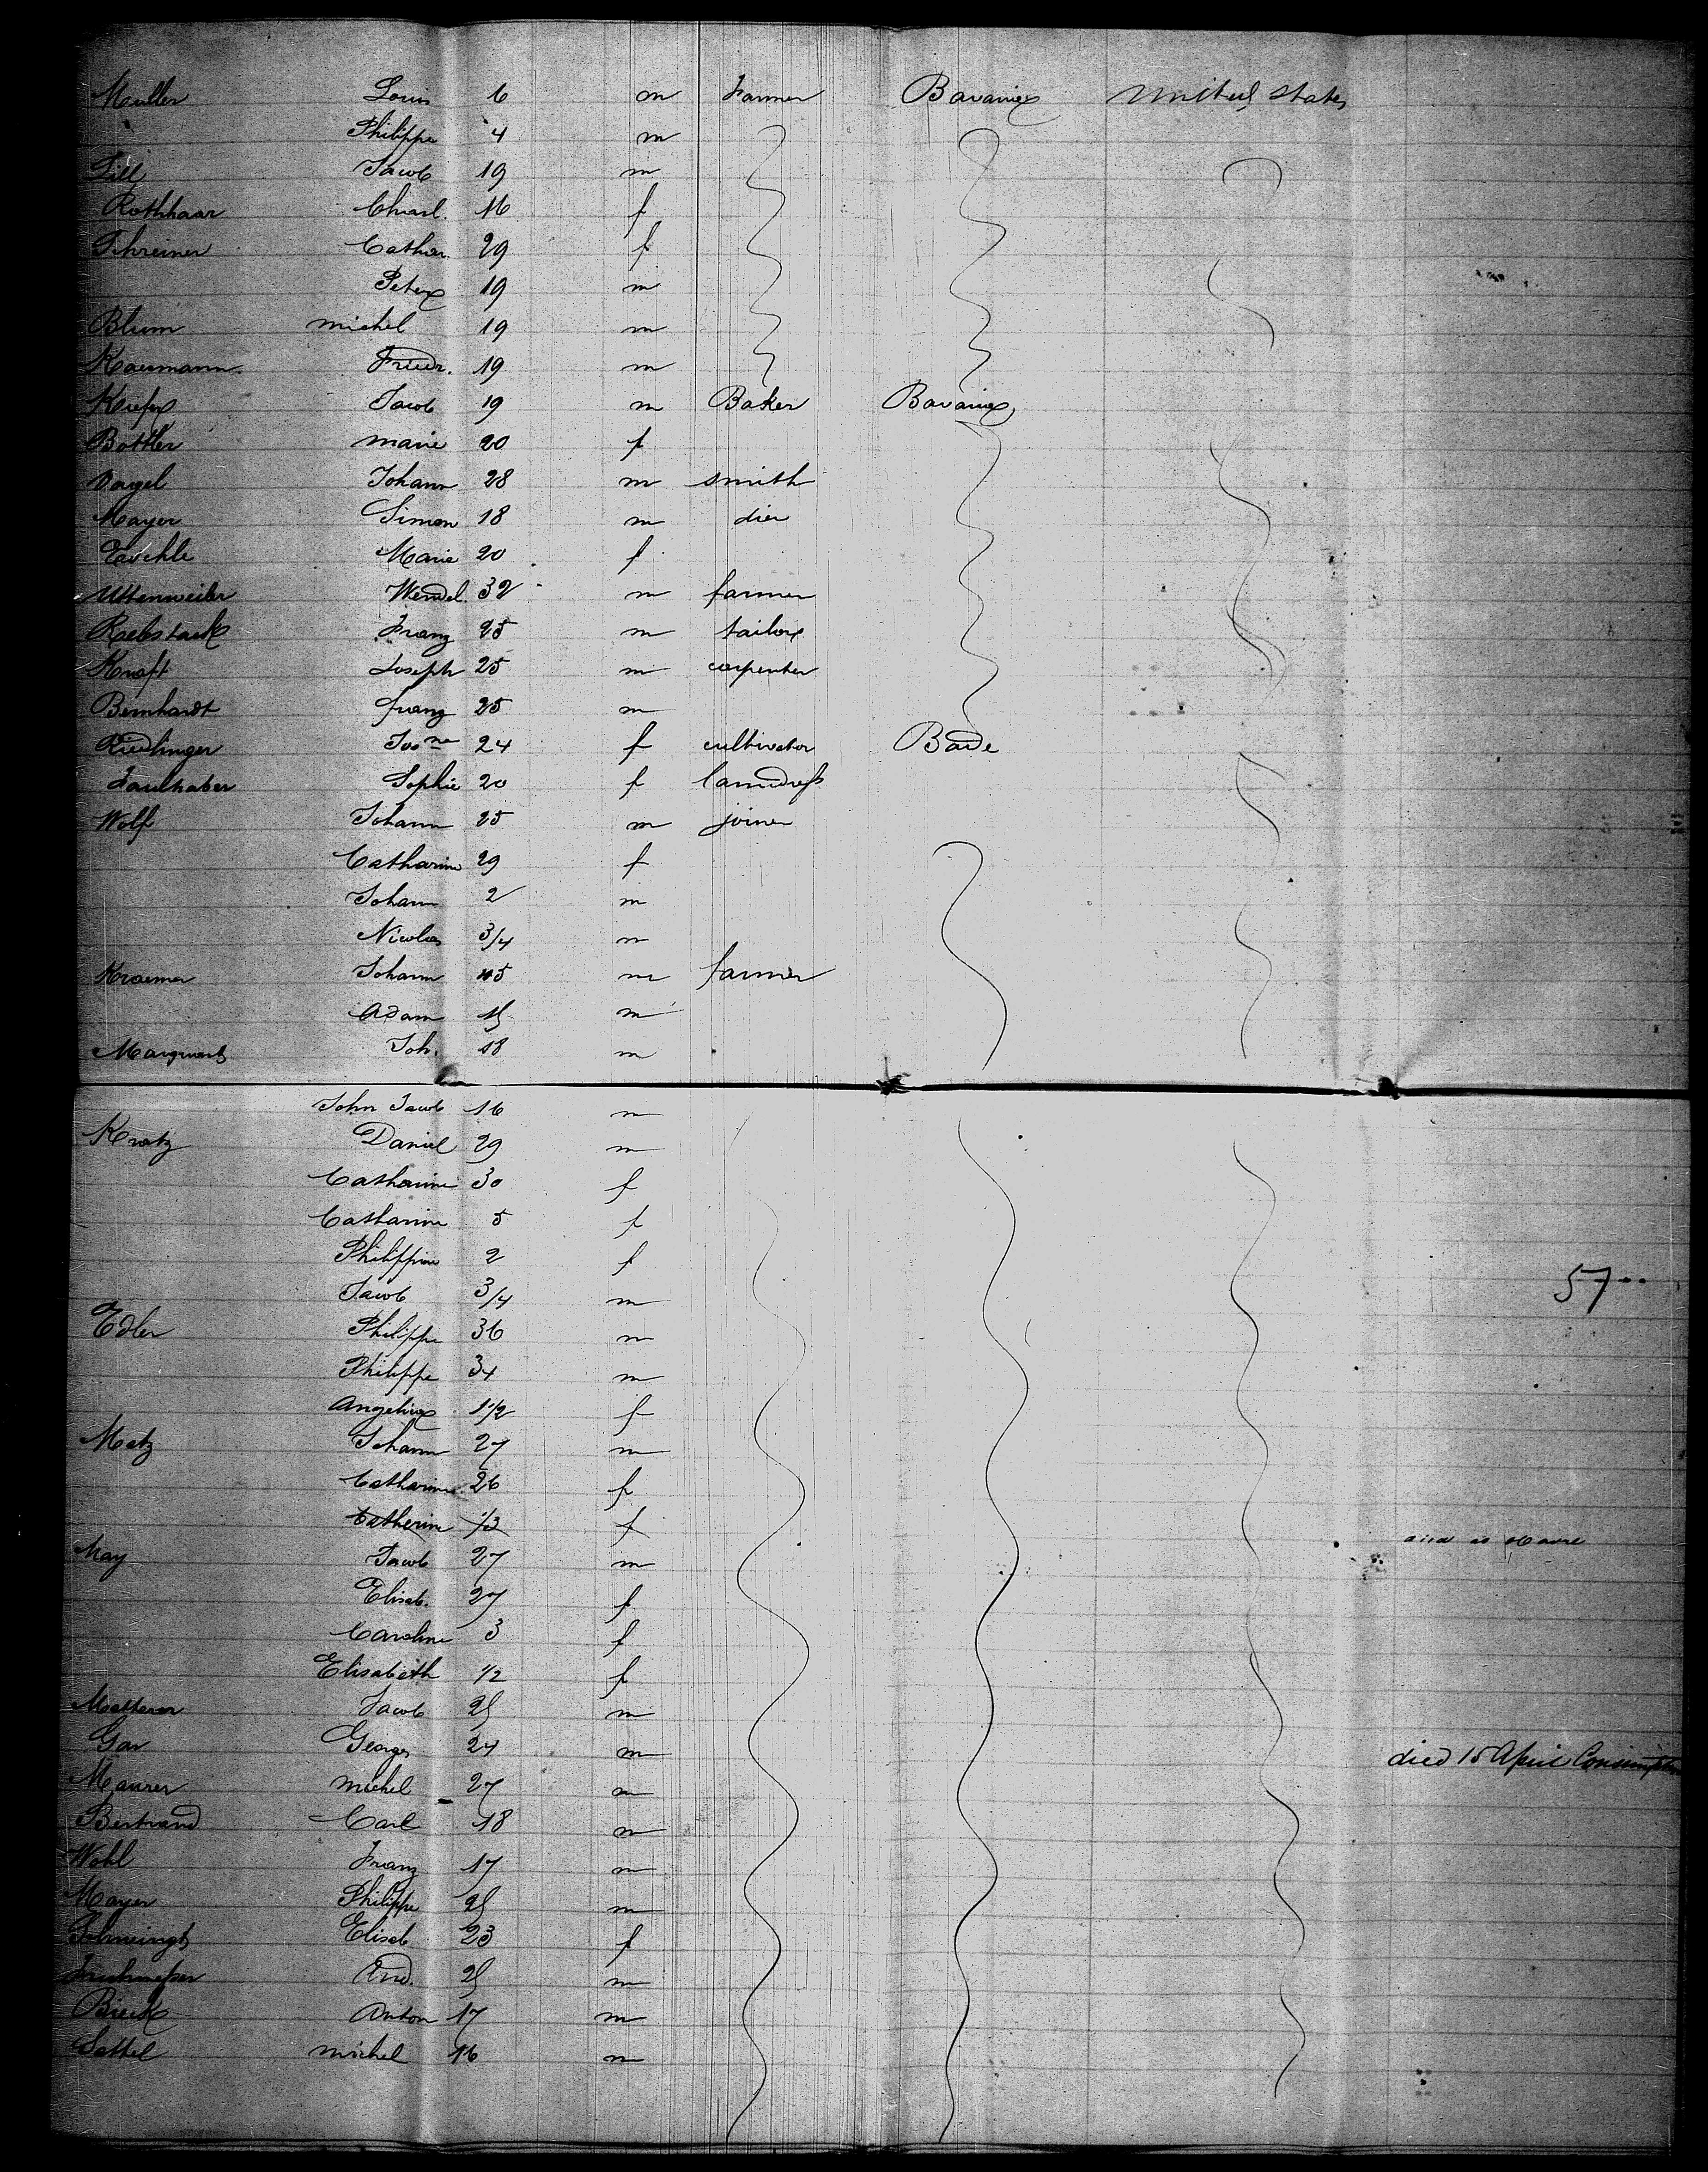 Muller Louis 6 m Farmer Bavaria United States
Philippe 4 m
Jacob 19 m
Rothhaar Charl. 16 f
Schreiner Cathar. 29 f
Peter 19 m
Blum michel 19 m
Friedr. 19 m
Kiefer Jacob 19 m Baker Bavaria
Bottler marie 20 f
Vogel Johann 28 m smith
Mayer Simon 18 m dier
Marie 20 f
Uttenweiler Wendel 32 m farmer
Rebstock Franz 25 m tailor
Kraft Joseph 25 m carpenter
Bernhardt franz 25 m
Riedlinger 24 f cultivator Bade
Faulhaber Sophie 20 f
Wolf Johann 25 m joiner
Catharine 29 f
Johann 2 m
Nicolas 3/4 m
Kraemer Johann 45 m farmer
Adam m
Joh. 18 m
John Jacob 16 m
Kratz Daniel 29 m
Catharine 30 f
Catharine 5 f
Philippine 2 f
57
Jacob 3/4 m
Edler Philippe 36 m
Philippe 34 m
1 1/2 f
Metz Johann 27 m
Catharine 26 f
Catherine 1/3 f
May Jacob 27 m
Elisab. 27 f
Caroline 3 f
Elisabeth 1/2 f
Jacob 25 m
Gar Georges 24 m died 15 April Consumption
Maurer michel 27 m
Bertrand Carl 18 m
Wohl Franz 17 m
Mayer Philippe 25 m
Elisab 23 f
25 m
Anton 17 m
Sattel michel 16 m